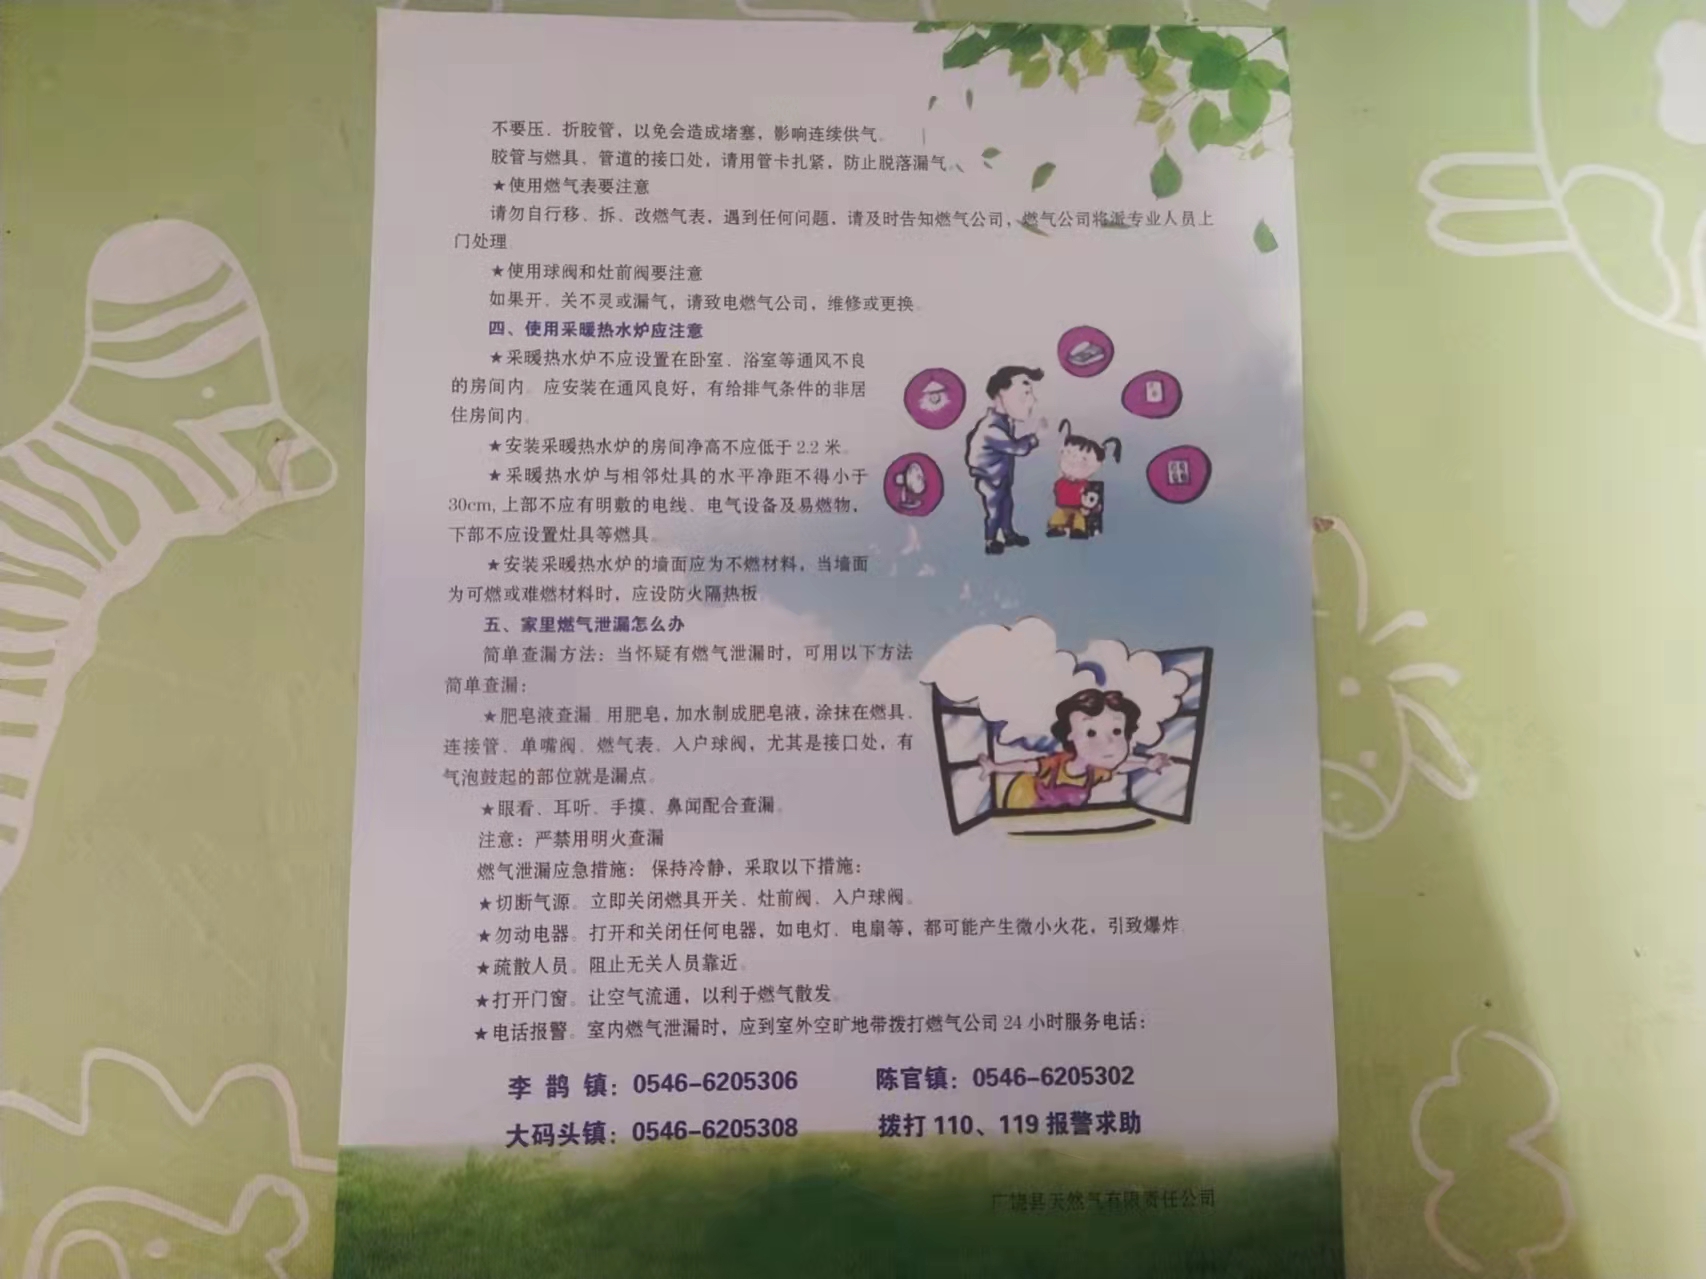 不要压、折胶管，以免会造成堵塞，影响连续供气。
胶管与燃具、管道的接口处，请用管卡扎紧，防止脱落漏气。
★使用燃气表要注意
请勿自行移、拆、改燃气表，遇到任何问题，请及时告知燃气公司，燃气公司将派专业人员上
门处理。
★使用球阀和灶前阀要注意
如果开、关不灵或漏气，请致电燃气公司，维修或更换。
四、使用采暖热水炉应注意
★采暖热水炉不应设置在卧室、浴室等通风不良
的房间内。应安装在通风良好，有给排气条件的非居
住房间内。
★安装采暖热水炉的房间净高不应低于 2.2 米。
★采暖热水炉与相邻灶具的水平净距不得小于
30cm, 上部不应有明敷的电线、电气设备及易燃物，
下部不应设置灶具等燃具。
★安装采暖热水炉的墙面应为不燃材料，当墙面
为可燃或难燃材料时，应设防火隔热板。
五、家里燃气泄漏怎么办
简单查漏方法：当怀疑有燃气泄漏时，可用以下方法
简单查漏：
★肥皂液查漏。用肥皂，加水制成肥皂液，涂抹在燃具、
连接管、单嘴阀、燃气表、入户球阀，尤其是接口处，有
气泡鼓起的部位就是漏点。
★眼看、耳听、手摸、鼻闻配合查漏。
注意：严禁用明火查漏
燃气泄漏应急措施： 保持冷静，采取以下措施：
★切断气源。立即关闭燃具开关、灶前阀、入户球阀。
★勿动电器。打开和关闭任何电器，如电灯、电扇等，都可能产生微小火花，引致爆炸。
★疏散人员。阻止无关人员靠近。
★打开门窗。让空气流通，以利于燃气散发。
★电话报警。室内燃气泄漏时，应到室外空旷地带拨打燃气公司 24 小时服务电话：
李 鹊 镇：0546-6205306 陈官镇：0546-6205302
大码头镇：0546-6205308 拨打 110、119 报警求助
广饶县天然气有限责任公司